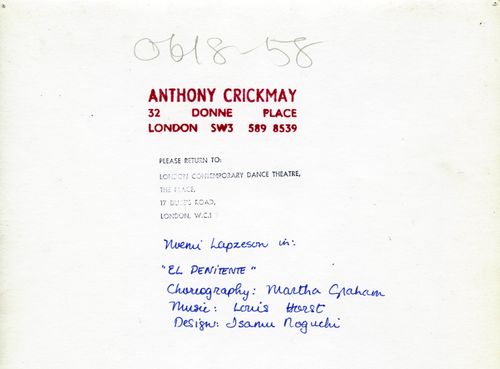 0618-58
ANTHONY CRICKMAY
32 DONNE PLACE
LONDON SW3 589 8539
PLEASE RETURN TO:
LONDON CONTEMPORARY DANCE THEATRE,
THE PLACE,
17 DUKE'S ROAD,
LONDON, W.C.1
Noemi Lapzeson in:
"EL PENITENTE"
Choreography: Martha Graham
Music: Louis Horst
Design: Isamu Noguchi